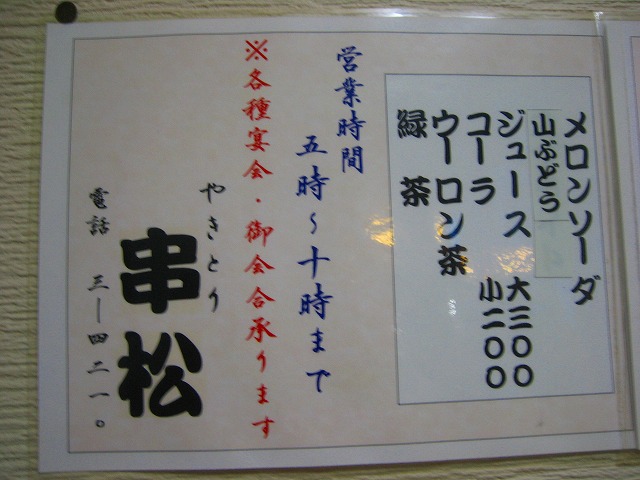 メロンソーダ
山ぶどう
ジュース
コーラ
ウーロン茶
緑茶
大三〇〇
小二〇〇
営業時間
五時～十時まで
※各種宴会・御会合承ります
やきとり
串松
電話 三―四二一〇